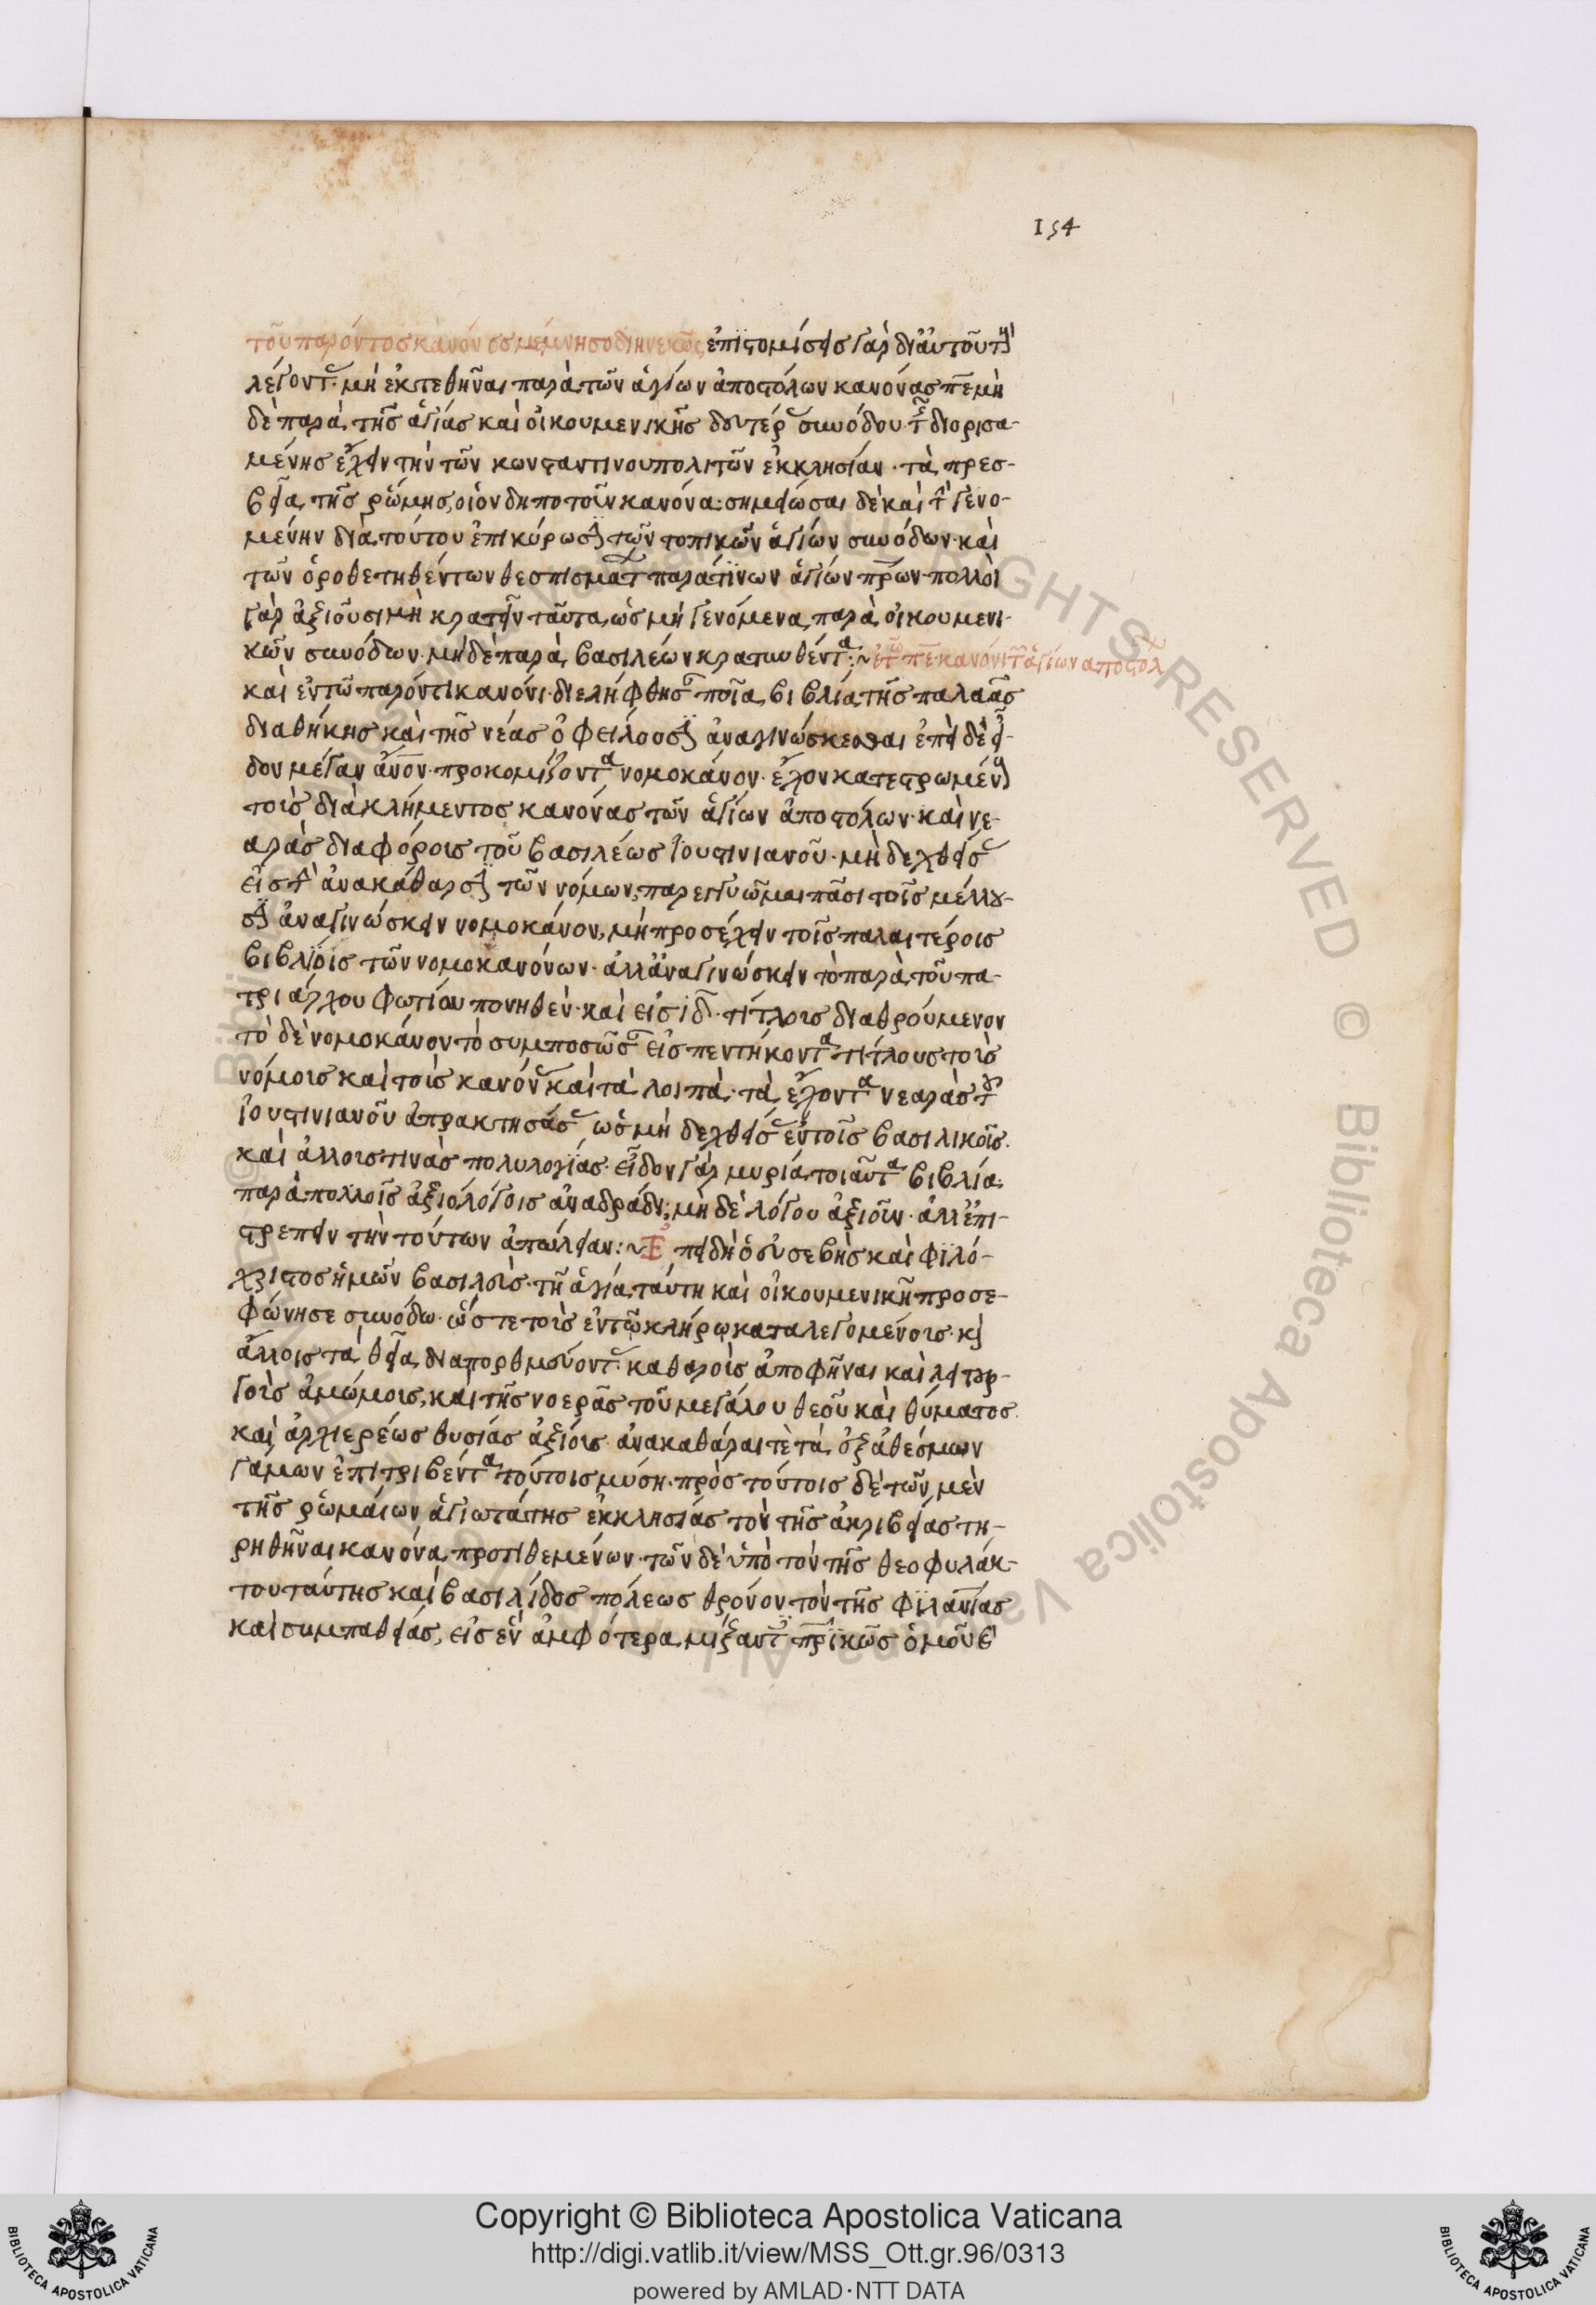 154
τοῦ παρόντος κανόνος μέμνησο διηνεκῶς ἐπιστομίσεις γὰρ δι' αὐτοῦ τοὺς
λέγοντας μὴ ἐκτεθῆναι παρὰ τῶν ἁγίων ἀποστόλων κανόνας πε μὴ
δὲ παρὰ τῆς ἁγίας καὶ οἰκουμενικῆς δευτέρας συνόδου τῆς διορισα-
μένης ἔχειν τὴν τῶν κωνσταντινουπολιτῶν ἐκκλησίαν · τὰ πρεσ-
βεῖα τῆς ῥώμης, οἷον δήποτ' οὖν κανόνα: σημείωσαι δὲ καὶ τὴν γενο-
μένην διὰ τούτου ἐπικύρωσιν τῶν τοπικῶν ἁγίων συνόδων· καὶ
τῶν ὁροθετηθέντων θεσπισμάτων παρά τινων ἁγίων πρων· πολλοὶ
γὰρ ἀξιοῦσι μὴ κρατεῖν ταῦτα, ὡς μὴ γενόμενα παρὰ οἰκουμενι-
κῶν συνόδων· μὴ δὲ παρὰ βασιλέων κρατυνθέντα :~ ἐν τῷ πε κανόνι τῶν ἁγίων αποστόλ
καὶ ἐν τῷ παρόντι κανόνι· διελήφθης ποῖα βιβλία τῆς παλαιᾶς
διαθήκης καὶ τῆς νέας ὀφείλουσιν ἀναγινώσκεσθαι ἐπεὶ δὲ εἶ-
δον μέγαν ἄνον· προκομίζοντα νομοκάνονον· ἔχον κατεστρωμένους
τοὺς διὰ κλήμεντος κανόνας τῶν ἁγίων ἀποστόλων· καὶ νε-
αρὰς διαφόρους τοῦ βασιλέως Ἰουστινιανοῦ· μὴ δεχθείσας
εἰς τὴν ἀνακάθαρσιν τῶν νόμων, παρεγγυῶμαι πᾶσι τοῖς μέλλου-
σιν ἀναγινώσκειν νομοκάνονον, μὴ προσέχειν τοῖς παλαιτέροις
βιβλίοις τῶν νομοκανόνων· ἀλλ' ἀναγινώσκειν τὸ παρὰ τοῦ πα-
τριάρχου φωτίου πονηθὲν· καὶ εἰς ιδ· τίτλους διαιρούμενον
τὸ δὲ νομοκάνονον τὸ συμποσωθὲν εἰς πεντήκοντα τίτλους τοὺς
νόμους καὶ τοὺς κανόνας καὶ τὰ λοιπὰ· τὰ ἔχοντα νεαρὰς τοῦ
Ἰουστινιανοῦ ἀπρακτησάσας ὡς μὴ δεχθείσας ἐν τοῖς βασιλικοῖς.
καὶ ἄλλους τινὰς πολυλογίας· εἶδον γὰρ μυρία τοιαῦτα βιβλία
παρὰ πολλοῖς ἀξιολόγοις ἀνδράσι, μὴ δὲ λόγου ἀξιοῦν· ἀλλ' ἐπι-
τρέπειν τὴν τούτων ἀπώλειαν:~ Ἐπειδὴ ὁ εὐσεβὴς καὶ φιλό-
χριστος ἡμῶν βασιλεὺς· τῇ ἁγίᾳ ταύτῃ καὶ οἰκουμενικῇ προσε-
φώνησε συνόδῳ· ὥστε τοὺς ἐν τῷ κλήρῳ καταλεγομένους· καὶ
ἄλλοις τὰ θεῖα διαπορθμεύοντας· καθαροὺς ἀποφῆναι καὶ λειτουρ-
γοὺς ἀμώμους, καὶ τῆς νοερᾶς τοῦ μεγάλου θεοῦ καὶ θύματος
καὶ ἀρχιερέως θυσίας ἀξίους· ἀνακαθάραι τὲ τὰ ἐξ ἀθέσμων
γάμων ἐπιτριβέντα τούτοις μύση· πρὸς τούτοις δὲ τῶν μὲν
τῆς ῥωμαίων ἁγιωτάτης ἐκκλησίας τὸν τῆς ἀκριβείας τη-
ρηθῆναι κανόνα προτιθεμένων· τῶν δὲ ὑπὸ τὸν τῆς θεοφυλάκ-
του ταύτης καὶ βασιλίδος πόλεως θρόνον τὸν τῆς φιλανίας
καὶ συμπαθείας, εἰς ἓν ἀμφότερα μίξαντας πρικῶς ὁμοῦ
Copyright © Biblioteca Apostolica Vaticana
http://digi.vatlib.it/view/MSS_Ott.gr.96/0313
powered by AMLAD·NTT DATA